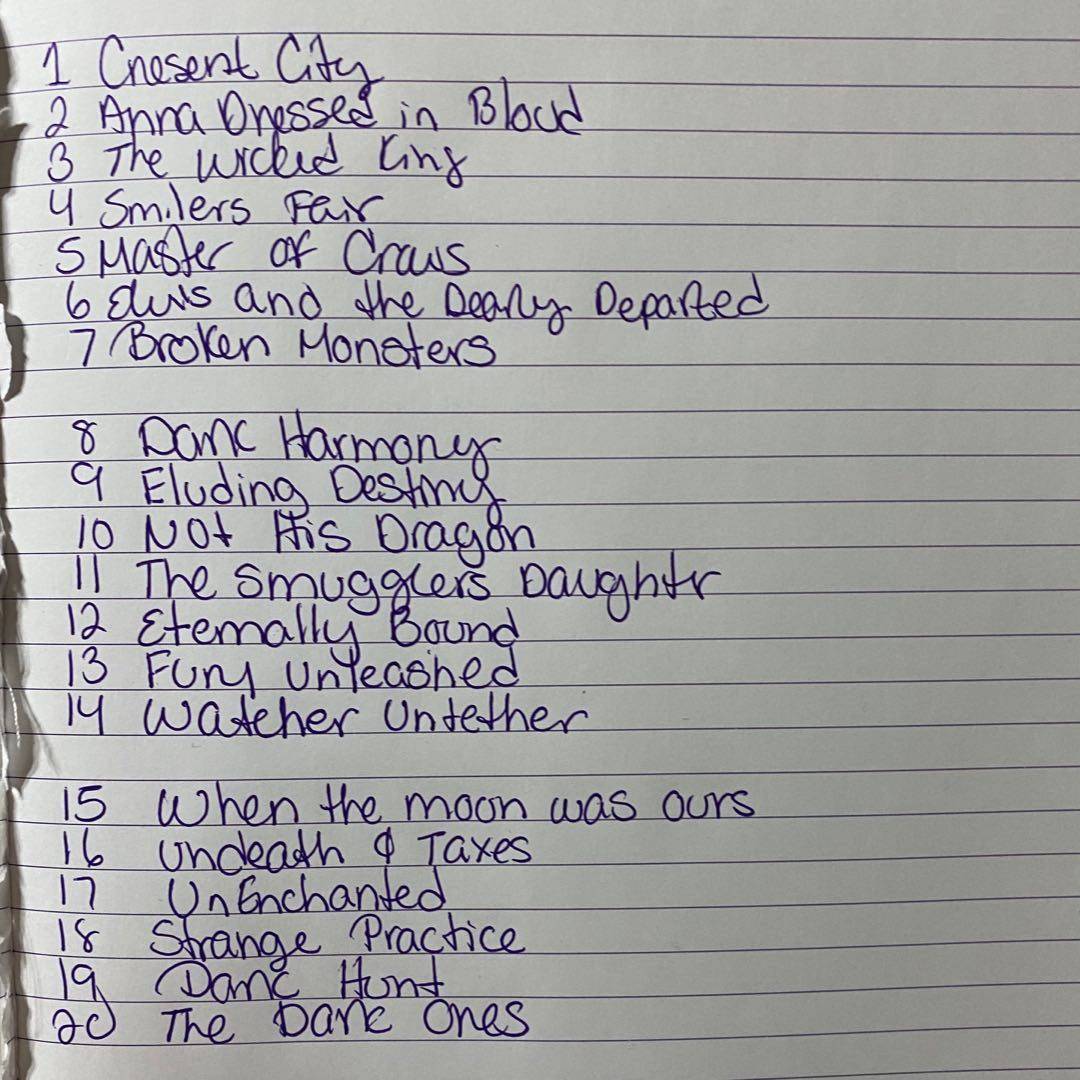 1 Cresent City
2 Anna Dressed in Blood
3 The Wicked King
4 Smilers Fair
5 Master of Crows
6 Elvis and the Dearly Departed
7 Broken Monsters
8 Dark Harmony
9 Eluding Destiny
10 Not His Dragon
11 The Smugglers Daughtr
12 Eternally Bound
13 Fury Unleashed
14 Watcher Untether
15 When the moon was ours
16 Undeath & Taxes
17 UnEnchanted
18 Strange Practice
19 Dark Hunt
20 The Dark Ones